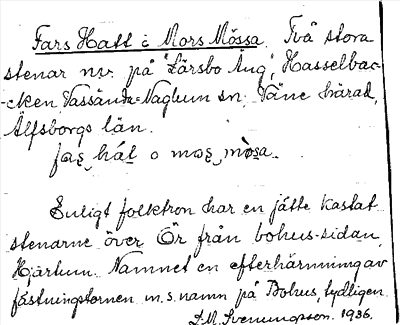 Fars Hatt o Mors Mössa. Två stora
stenar nv. på "Lärsbo Äng", Hasselbac-
-cken, Vassända-Naglum sn, Väne härad,
Älfsborgs län.
fas hat o mos mosa.
Enligt folktron har en jätte kastat
stenarne över Ör från bohus-sidan,
Hjärtum. Namnet en efterhärmning av
fästningstornen m. s. namn på Bohus, tydligen.
Svenungson. 1936.